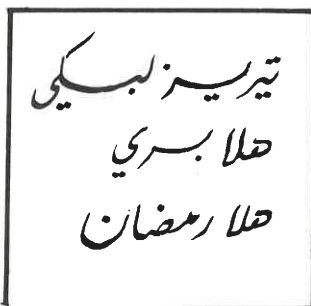 تيريز لبكي
هلا بسري
هلا رمضان